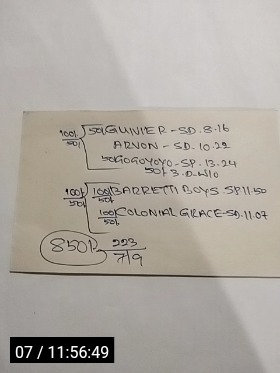 100/. 50/. 50/GUNIER - SD. 8.16
ARVON - SD. 10.22
50/GOGOYOYO - SP. 13.24
50/ 3.D.W10
100/. 50/. 100/. 50/. BARRETTI BOYS SP 11.50
100/. 50/. COLONIAL GRACE - SD. 11.07
850/. 223
7/9
07 / 11:56:49